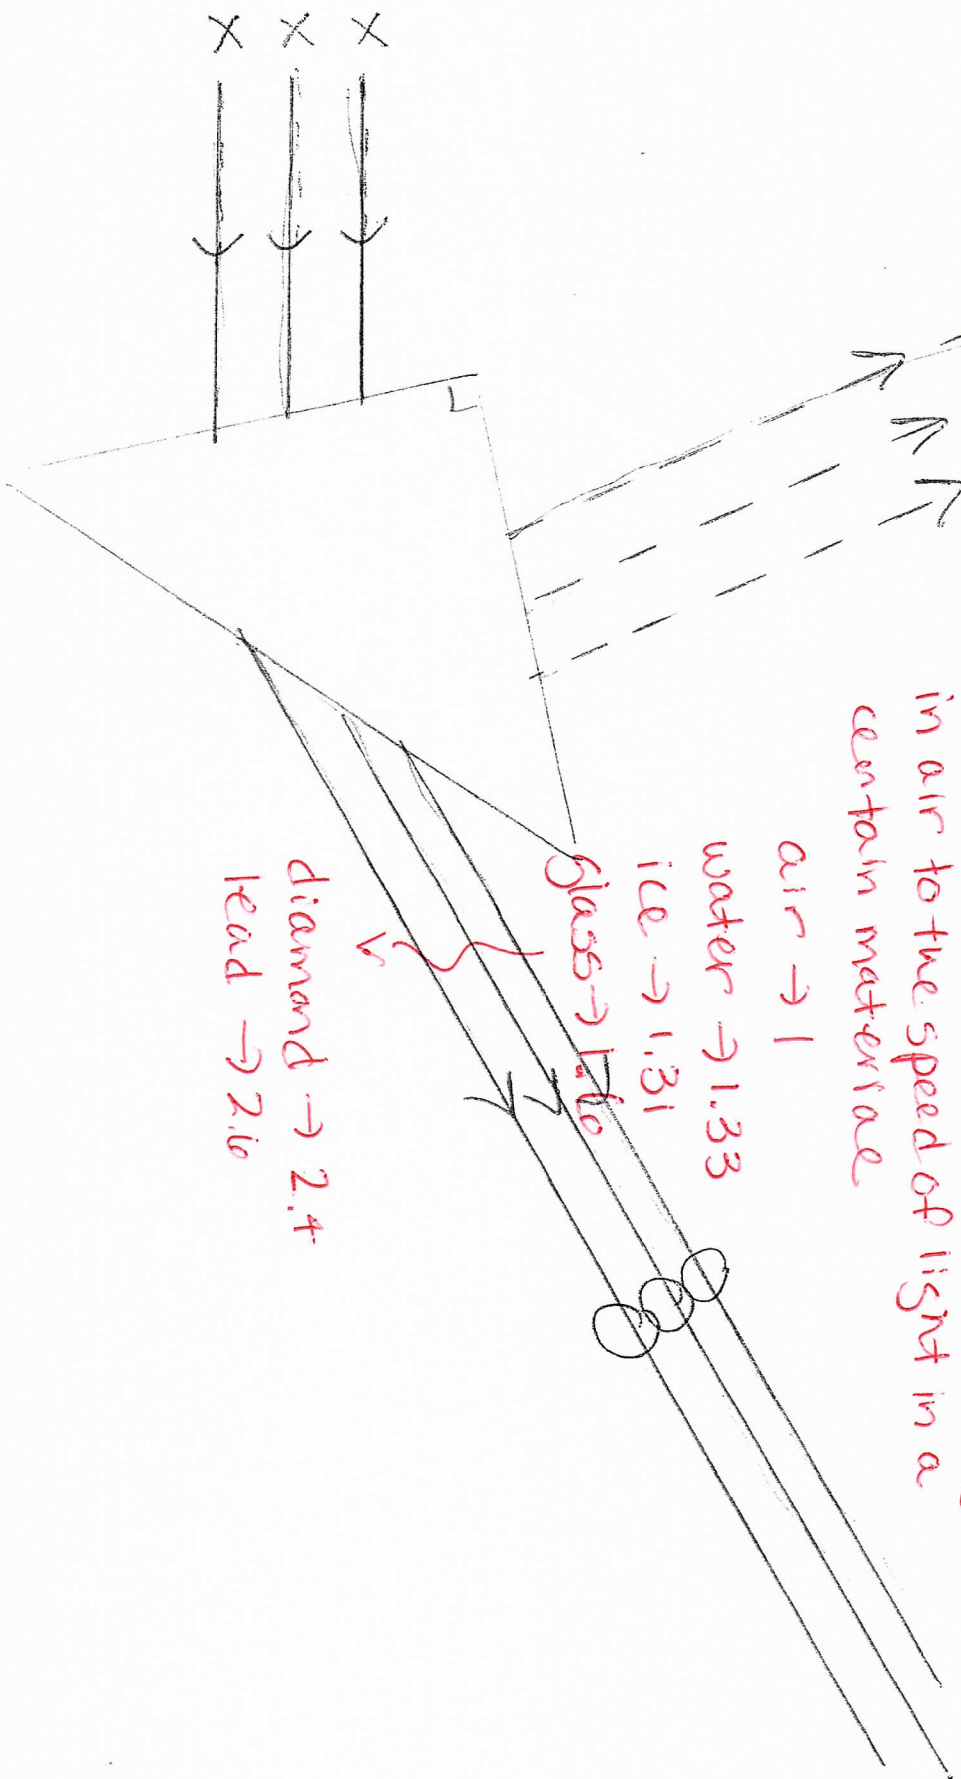 in air to the speed of light in a
certain material
air → 1
water → 1.33
ice → 1.31
glass → 1.6
diamond → 2.4
lead → 2.6
X X X